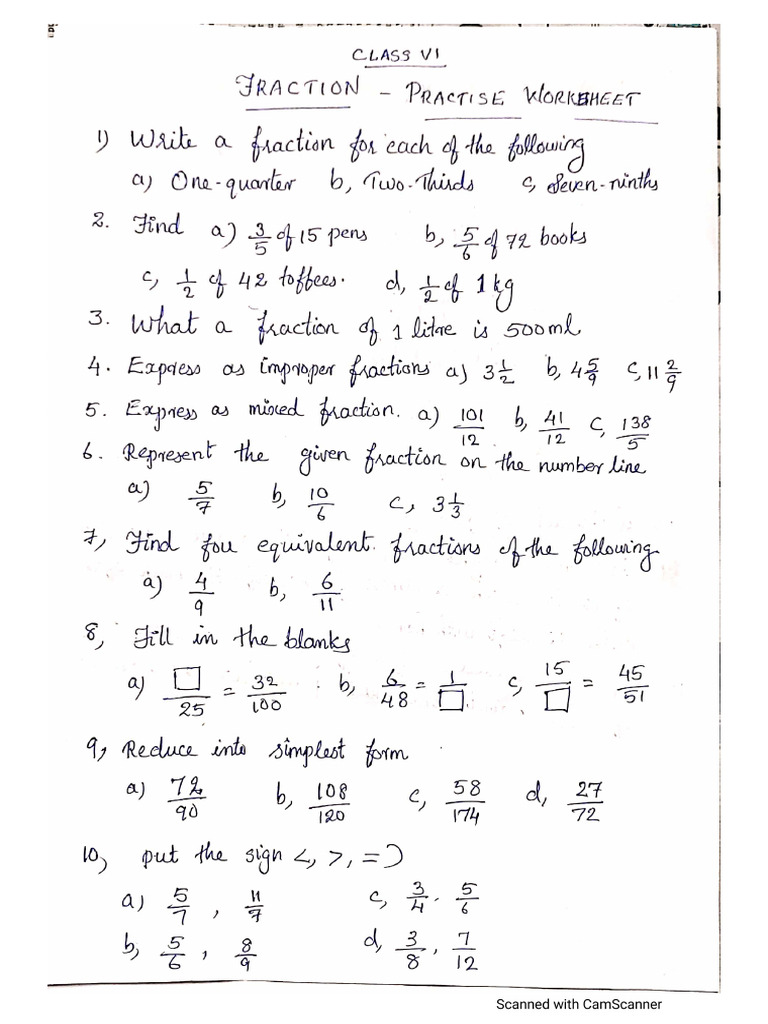 CLASS VI
FRACTION - PRACTISE WORKSHEET
1) Write a fraction for each of the following
a) One-quarter b, Two-Thirds c, Seven-ninths
2. Find a) 3/5 of 15 pens b, 5/6 of 72 books
c, 1/2 of 42 toffees. d, 1/2 of 1 kg
3. What a fraction of 1 litre is 500ml
4. Express as improper fractions a) 3 1/2 b, 4 5/9 c, 11 2/9
5. Express as mixed fraction. a) 101/12 b, 41/12 c, 138/5
6. Represent the given fraction on the number line
a) 5/7 b, 10/6 c, 3 1/3
7, Find fou equivalent fractions of the following
a) 4/9 b, 6/11
8, Fill in the blanks
a) □/25 = 32/100 b, 6/48 = 1/□ c, 15/□ = 45/51
9, Reduce into simplest form
a) 72/90 b, 108/120 c, 58/174 d, 27/72
10, put the sign <, >, =)
a) 5/7 , 11/7 c, 3/4 . 5/6
b, 5/6 , 8/9 d, 3/8 , 7/12
Scanned with CamScanner